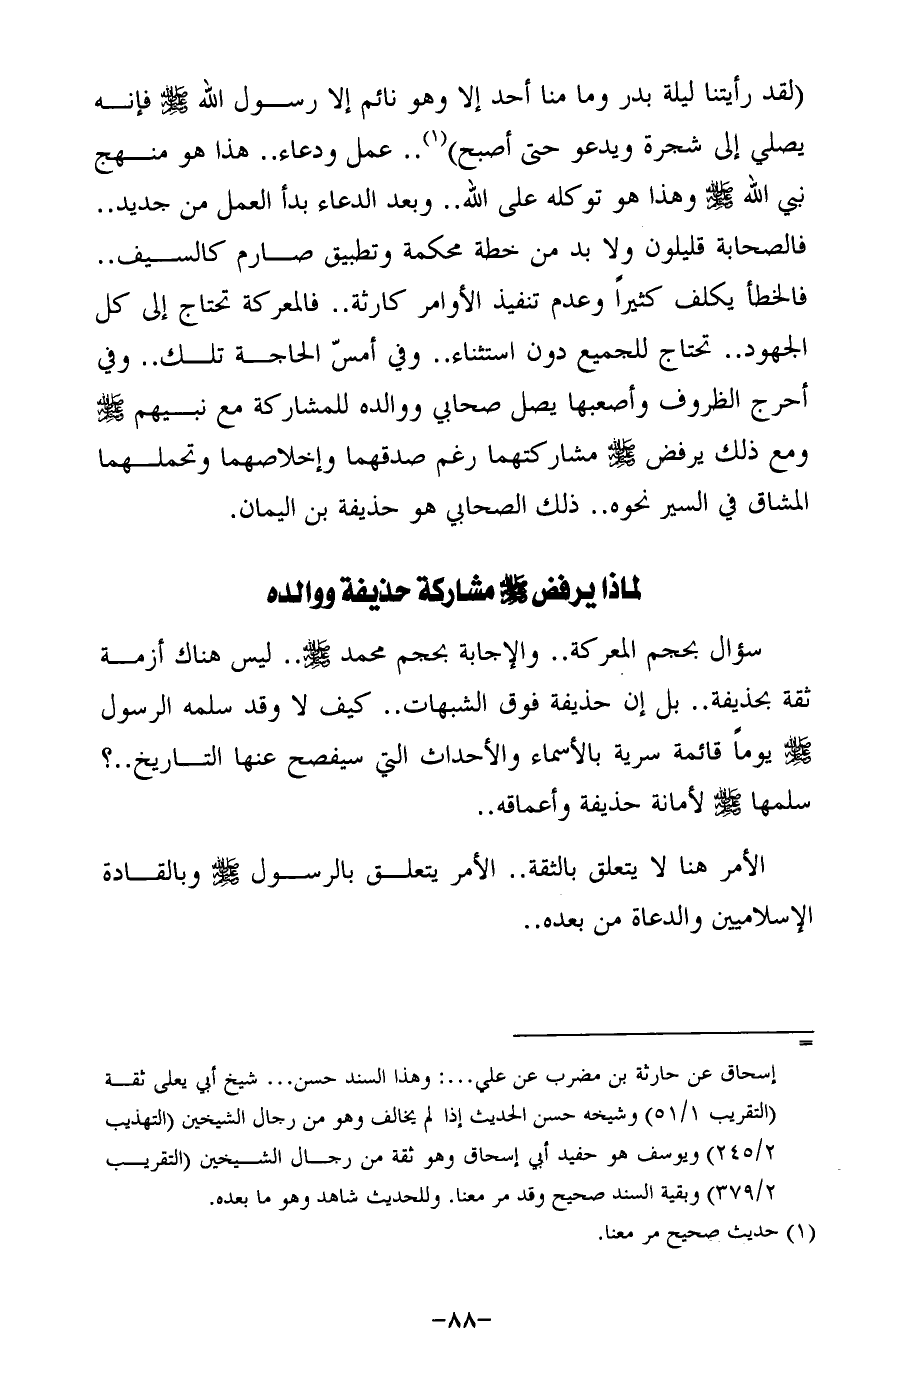 (لقد رأيتنا ليلة بدر وما منا أحد إلا وهو نائم إلا رسول الله ﷺ فإنه
يصلي إلى شجرة ويدعو حتى أصبح)(١).. عمل ودعاء.. هذا هو منهج
نبي الله ﷺ وهذا هو توكله على الله.. وبعد الدعاء بدأ العمل من جديد..
فالصحابة قليلون ولا بد من خطة محكمة وتطبيق صارم كالسيف..
فالخطأ يكلف كثيراً وعدم تنفيذ الأوامر كارثة.. فالمعركة تحتاج إلى كل
الجهود.. تحتاج للجميع دون استثناء.. وفي أمسّ الحاجة تلك.. وفي
أحرج الظروف وأصعبها يصل صحابي ووالده للمشاركة مع نبيهم ﷺ
ومع ذلك يرفض ﷺ مشاركتهما رغم صدقهما وإخلاصهما وتحملهما
المشاق في السير نحوه.. ذلك الصحابي هو حذيفة بن اليمان.
لماذا يرفض ﷺ مشاركة حذيفة ووالده
سؤال بحجم المعركة.. والإجابة بحجم محمد ﷺ.. ليس هناك أزمة
ثقة بحذيفة.. بل إن حذيفة فوق الشبهات.. كيف لا وقد سلمه الرسول
ﷺ يوماً قائمة سرية بالأسماء والأحداث التي سيفصح عنها التاريخ..؟
سلمها ﷺ لأمانة حذيفة وأعماقه..
الأمر هنا لا يتعلق بالثقة.. الأمر يتعلق بالرسول ﷺ وبالقادة
الإسلاميين والدعاة من بعده..
=
إسحاق عن حارثة بن مضرب عن علي...: وهذا السند حسن... شيخ أبي يعلى ثقة
(التقريب ٥١/١) وشيخه حسن الحديث إذا لم يخالف وهو من رجال الشيخين (التهذيب
٢٤٥/٢) ويوسف هو حفيد أبي إسحاق وهو ثقة من رجال الشيخين (التقريب
٣٧٩/٢) وبقية السند صحيح وقد مر معنا. وللحديث شاهد وهو ما بعده.
(١) حديث صحيح مر معنا.
-٨٨-